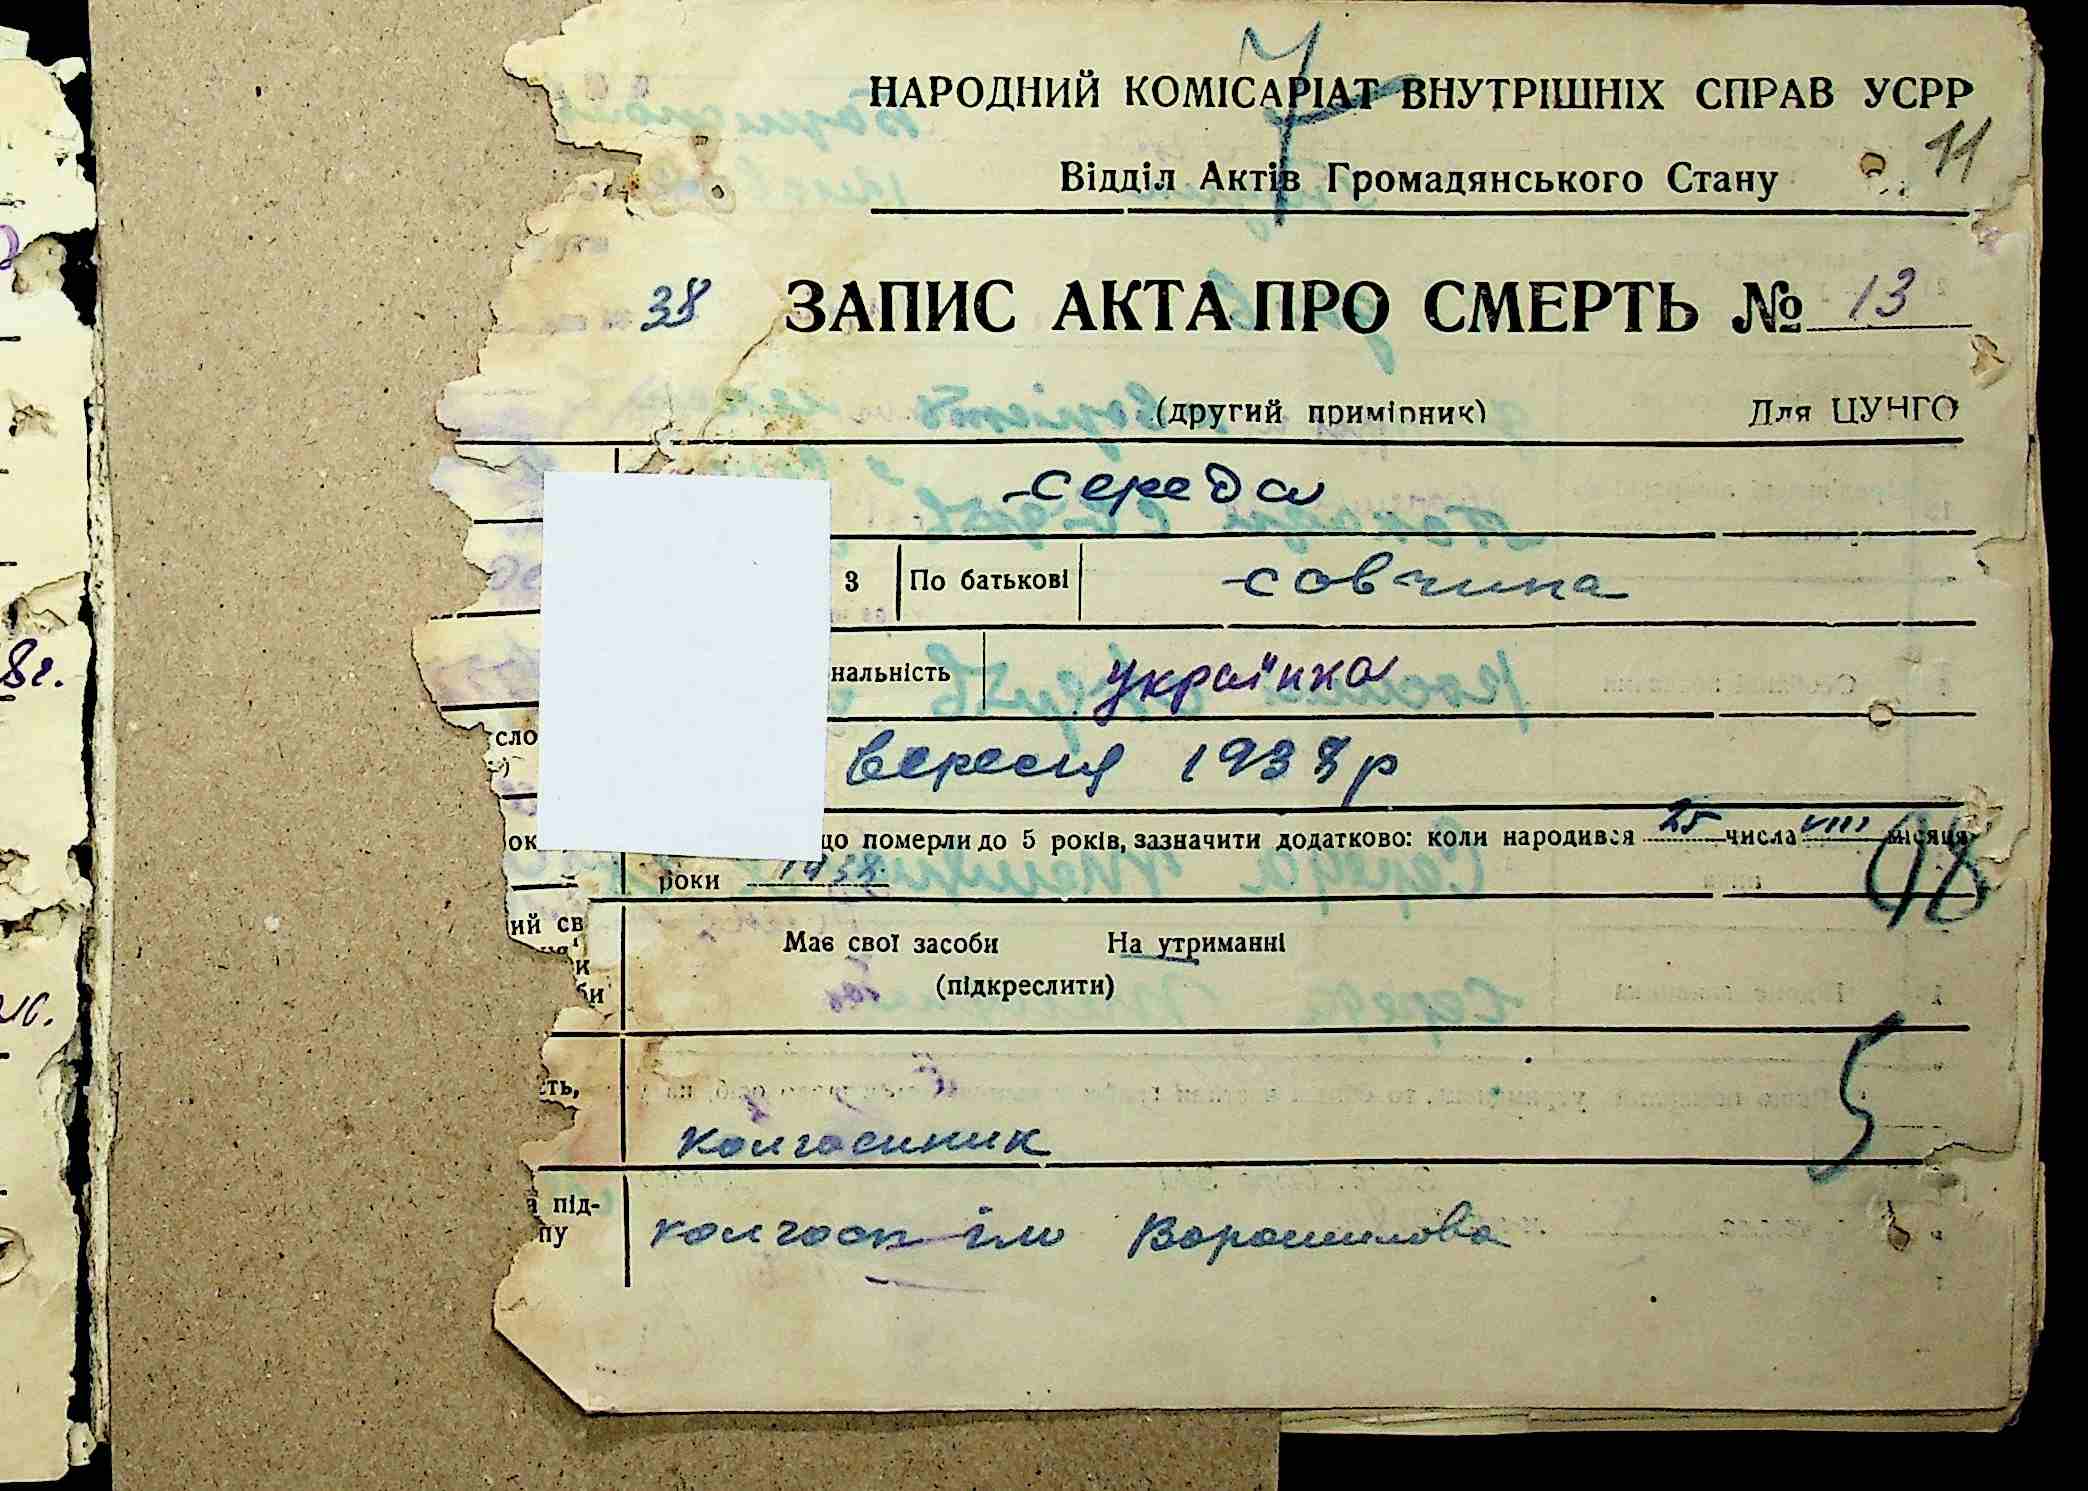 7
НАРОДНИЙ КОМІСАРІАТ ВНУТРІШНІХ СПРАВ УСРР
11
Відділ Актів Громадянського Стану
38 ЗАПИС АКТА ПРО СМЕРТЬ № 13
(другий примірник) Для ЦУНГО
Середа
3 По батькові Совчина
нальність українка
сло
вересня 1938 р
ок що померли до 5 років, зазначити додатково: коли народився 25 числа VIII місяця
роки 1938
48
ий св
Має свої засоби На утриманні
и
(підкреслити)
би
5
сть,
колгосник
під-
пу
колгосп ім Ворошилова
8г.